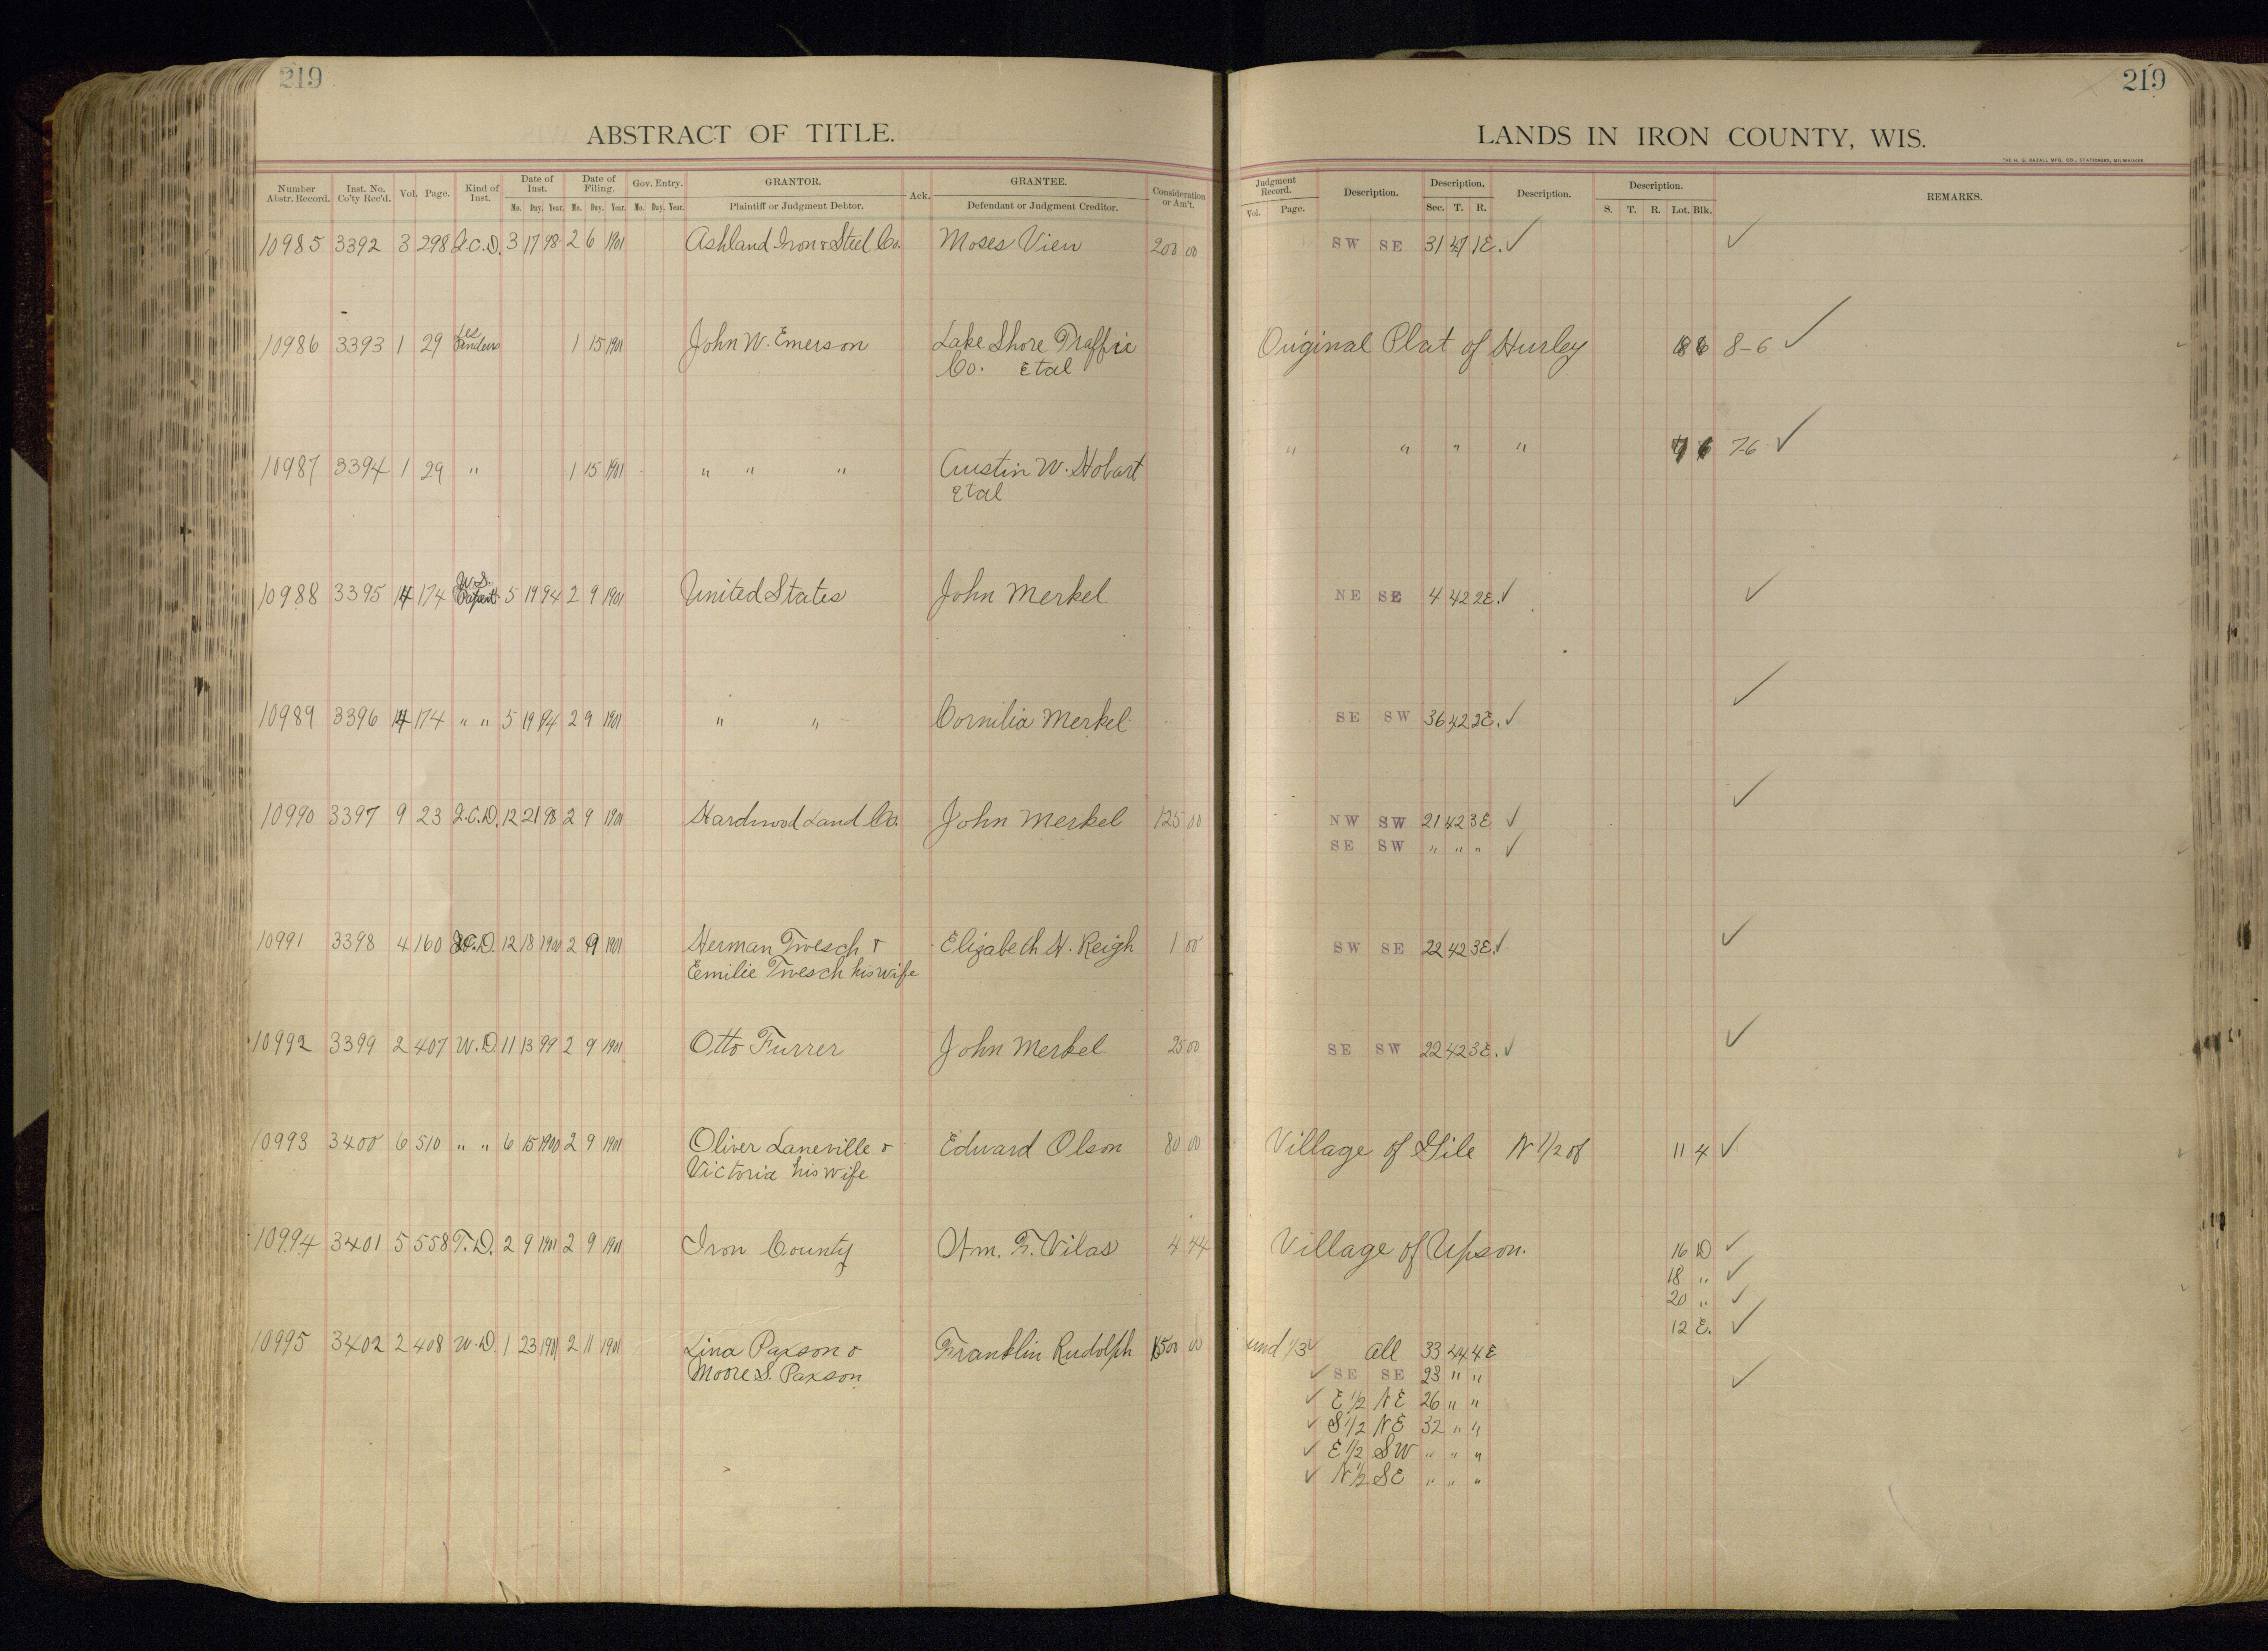 219
219
ABSTRACT OF TITLE.
LANDS IN IRON COUNTY, WIS.
THE H. G. RAZALL MFG. CO., STATIONERS, MILWAUKEE.
Number Abstr. Record. Inst. No. Co'ty Rec'd. Vol. Page. Kind of Inst. Date of Inst. Mo. Day. Year. Date of Filing. Mo. Day. Year. Gov. Entry. Mo. Day. Year. GRANTOR. Plaintiff or Judgment Debtor. Ack. GRANTEE. Defendant or Judgment Creditor. Consideration or Am't.
Judgment Record. Vol. Page. Description. Description. Sec. T. R. Description. Description. S. T. R. Lot. Blk. REMARKS.
10985 3392 3 298 Q.C.D. 3 17 98 2 6 1901 Ashland Iron & Steel Co. Moses Vien 200 00 SW SE 31 47 1E. ✓ ✓
10986 3393 1 29 Les Pendens 1 15 1901 John W. Emerson Lake Shore Traffic Original Plat of Hurley 8 6 8-6 ✓
Co. Etal
10987 3394 1 29 " 1 15 1901 " " " Austin W. Hobart " " " " 7 6 7-6 ✓
Etal
10988 3395 14 174 U.S. Patent 5 19 94 2 9 1901 United States John Merkel NE SE 4 42 2E. ✓ ✓
10989 3396 14 174 " " 5 19 94 2 9 1901 " " Cornilia Merkel SE SW 36 42 2E. ✓ ✓
10990 3397 9 23 Q.C.D. 12 21 98 2 9 1901 Hardwood Land Co. John Merkel 125 00 NW SW 21 42 3E ✓ ✓
SE SW " " " ✓
10991 3398 4 160 Q.C.D. 12 18 1900 2 9 1901 Herman Twesch & Elizabeth H. Reigh 1 00 SW SE 22 42 3E. ✓ ✓
Eemilie Twesch his wife
10992 3399 2 407 W.D. 11 13 99 2 9 1901 Otto Furrer John Merkel 25 00 SE SW 22 42 3E. ✓ ✓
10993 3400 6 510 " " 6 15 1900 2 9 1901 Oliver Laneville & Edward Olson 80 00 Village of Gile N 1/2 of 11 4 ✓
Victoria his wife
10994 3401 5 558 T.D. 2 9 1901 2 9 1901 Iron County Wm. F. Vilas 4 44 Village of Upson. 16 D ✓
18 " ✓
20 " ✓
12 E. ✓
10995 3402 2 408 W.D. 1 23 1901 2 11 1901 Lina Paxson & Franklin Rudolph 1500 00 und 1/3 ✓ all 33 44 4E
Moore S. Paxson ✓ SE SE 23 " " ✓
✓ E 1/2 NE 26 " "
✓ S 1/2 NE 32 " "
✓ E 1/2 SW " " "
✓ N 1/2 SE " " "